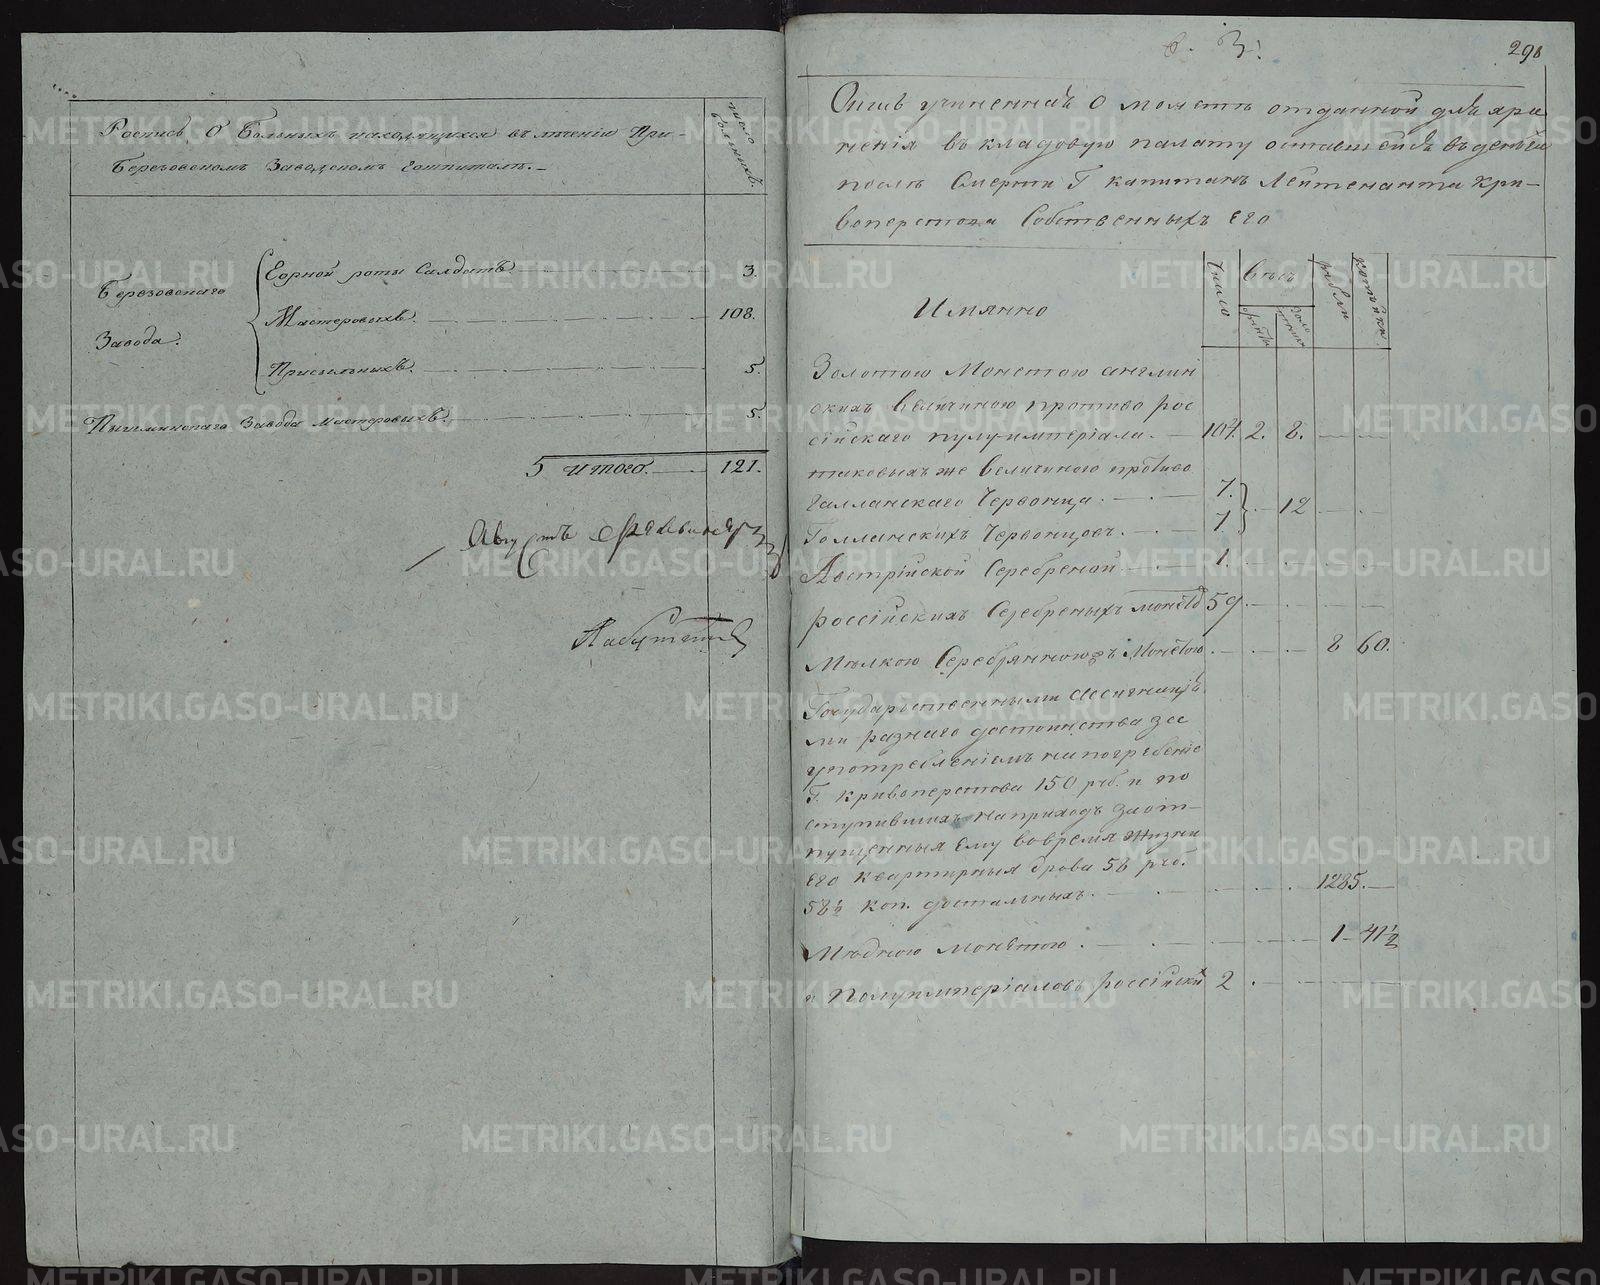 Роспись О Больныхъ находящихся въ лѣченіи При-
Березовскомъ Заводскомъ Гошпиталѣ.-
число больныхъ.
Березовскаго
Завода.
Горной роты Салдатъ 3.
Мастеровыхъ. 108.
Присыльныхъ. 5.
Пышминскаго Завода мастеровыхъ. 5.
Итого. 121.
Августъ
в. 3.
298
Опись учиненная О монетѣ отданной для хра
ненія въ кладовую палату оставшейся въ деньги
послѣ Смерти Г капитанъ Лейтенанта Кри-
воперстова Собственныхъ Его
Имянно
Число
Вѣсъ
фунты
золотники
рубли
копѣйки
Золотою Монетою англин
скихъ величиною противо рос
сійскаго полуимперіала. 107. 2. 8.
таковыхъ же Величиною противо
Галланскаго Червонца. 7.
12
Голланскихъ Червонцовъ. 7
Австрійской Серебреной 1.
россійскихъ Серебреныхъ монетъ 59
Мѣлкою Серебрянною Монетою. 8 60.
Государственными Ассигнація
ми разнаго достоинства за
употребленіемъ на погребеніе
Г. Кривоперстова 150 руб. и по
ступившихъ на приходъ за от-
пущенныя Ему во время жизни
Его квартирныя дрова 58 руб.
58½ коп. достальныхъ. 1285.
Мѣдною монетою. 1 41½
и Полуимперіаловъ россійски 2
METRIKI.GASO-URAL.RU